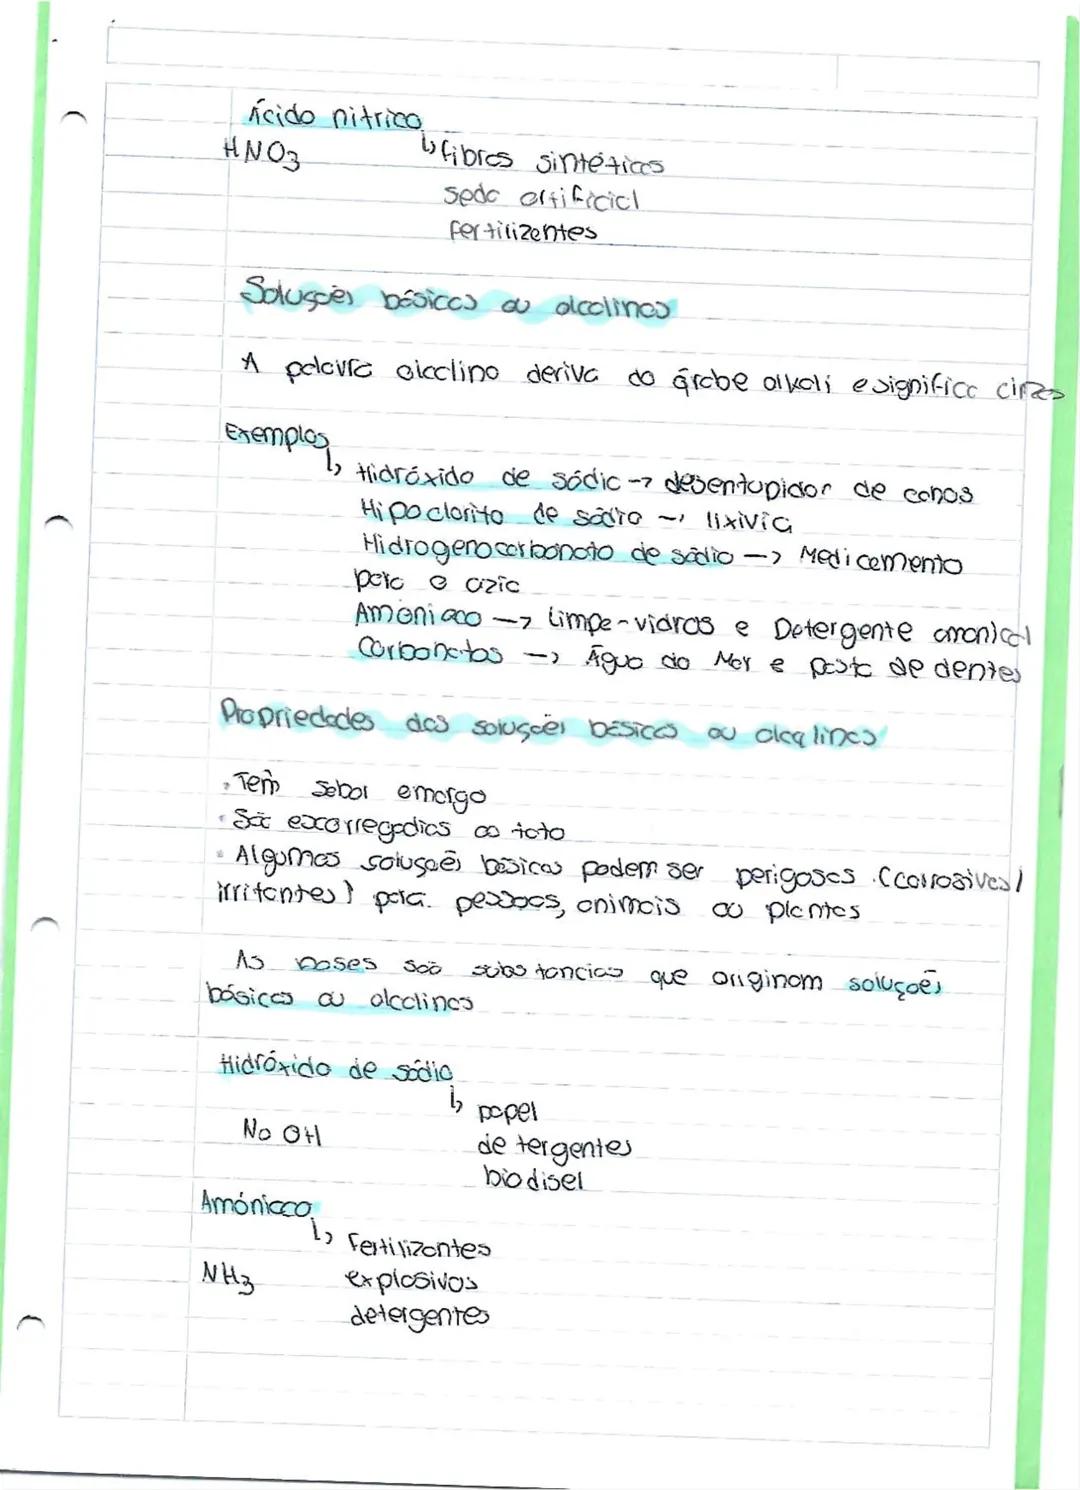 Ácido nitrico
HNO3
↳ fibras sintéticas
seda artificial
fertilizantes
Soluções básicas ou alcalinas
A palavra alcalino deriva do árabe alkali e significa cinzas
Exemplos
↳ Hidróxido de sódio → desentupidor de canos
Hipoclorito de sódio → lixívia
Hidrogenocarbonato de sódio → Medicamento
para a azia
Amoniaco → Limpa-vidros e Detergente amoniacal
Carbonatos → Água do Mar e pasta de dentes
Propriedades das soluções básicas ou alcalinas
• Tem sabor amargo
• São escorregadias ao tato
• Algumas soluções básicas podem ser perigosas (corrosivas/
irritantes) para pessoas, animais ou plantas
As bases são substancias que originam soluções
básicas ou alcalinas
Hidróxido de sódio
↳ papel
Na OH
detergentes
biodisel
Amóniaco
↳ fertilizantes
NH3
explosivos
detergentes